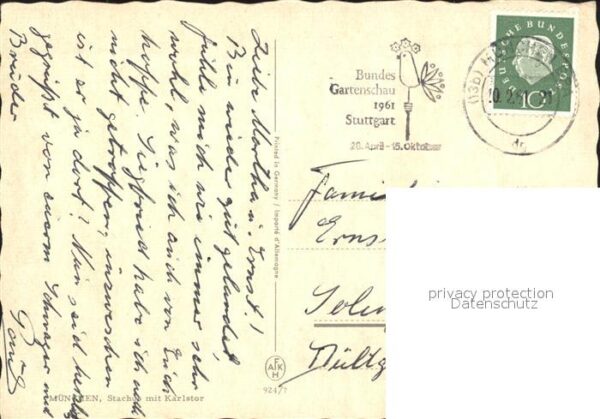 Liebe Martha u. Ernst!
Bin wieder gut gelandet,
fühle mich wie immer sehr
wohl, was ich auch von Euch
hoffe. Siegfried habe ich noch
nicht getroffen, inzwischen
ist er ja dort? Nun seid herzl.
gegrüßt von euerm Schwager und
Bruder
Bundes
Gartenschau
1961
Stuttgart
20. April - 15. Oktober
DEUTSCHE BUNDESPOST
10
(13b) MÜNCHEN
10.2.61-21
Printed in Germany / Importé d'Allemagne
Famil
Ernst
Solin
privacy protection
Datenschutz
F
A K
H
924/7
MÜNCHEN, Stachus mit Karlstor